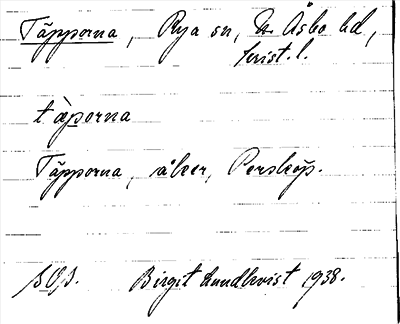 Täpporna, Rya sn, N. Åsbo hd,
Krist. l.
t æ̀porna
Täpporna, åker, Perstorp.
Birgit Lundkvist 1938.